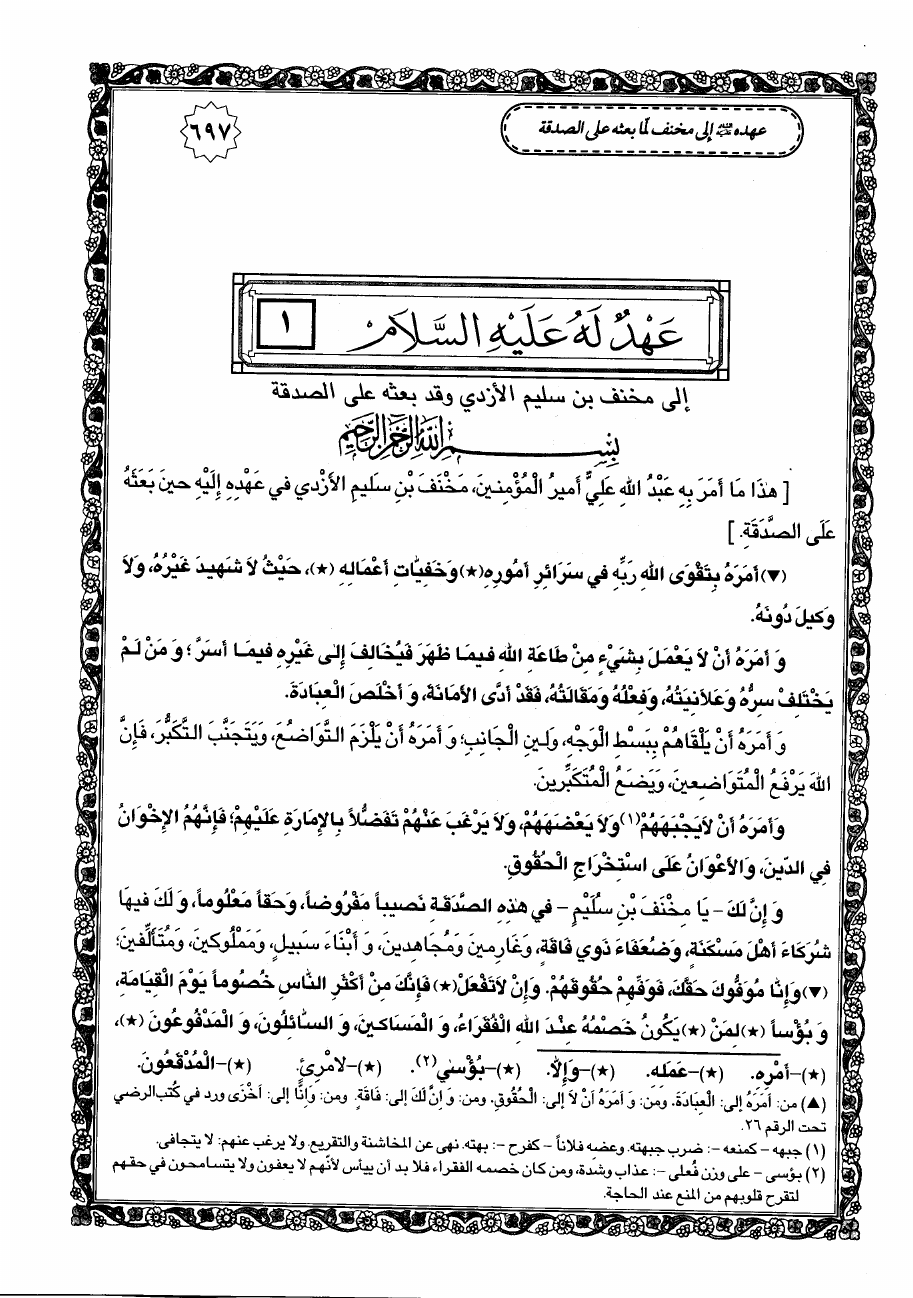 عهده عليه السلام إلى مخنف لمّا بعثه على الصدقة
٦٩٧
عَهْدٌ لَهُ عَلَيْهِ السَّلَامُ
١
إلى مخنف بن سليم الأزدي وقد بعثه على الصدقة
بِسْمِ اللهِ الرَّحْمٰنِ الرَّحِيمِ
[ هٰذَا مَا أَمَرَ بِهِ عَبْدُ اللهِ عَلِيٌّ أَمِيرُ الْمُؤْمِنِينَ، مَخْنَفَ بْنِ سَلِيمِ الأَزْدِي فِي عَهْدِهِ إِلَيْهِ حِينَ بَعَثَهُ
عَلَى الصَّدَقَةِ. ]
(▼) أَمَرَهُ بِتَقْوَى اللهِ رَبِّهِ فِي سَرَائِرِ أُمُورِهِ (★) وَخَفِيَّاتِ أَعْمَالِهِ (★)، حَيْثُ لَا شَهِيدَ غَيْرُهُ، وَلَا
وَكِيلَ دُونَهُ.
وَ أَمَرَهُ أَنْ لَا يَعْمَلَ بِشَيْءٍ مِنْ طَاعَةِ اللهِ فِيمَا ظَهَرَ فَيُخَالِفَ إِلَى غَيْرِهِ فِيمَا أَسَرَّ؛ وَ مَنْ لَمْ
يَخْتَلِفْ سِرُّهُ وَعَلَانِيَتُهُ، وَفِعْلُهُ وَمَقَالَتُهُ، فَقَدْ أَدَّى الأَمَانَةَ، وَ أَخْلَصَ الْعِبَادَةَ.
وَ أَمَرَهُ أَنْ يَلْقَاهُمْ بِبَسْطِ الْوَجْهِ، وَلِينِ الْجَانِبِ؛ وَ أَمَرَهُ أَنْ يَلْزَمَ التَّوَاضُعَ، وَيَتَجَنَّبَ التَّكَبُّرَ، فَإِنَّ
اللهَ يَرْفَعُ الْمُتَوَاضِعِينَ، وَيَضَعُ الْمُتَكَبِّرِينَ.
وَأَمَرَهُ أَنْ لَا يَجْبَهَهُمْ (١) وَلَا يَعْضَهَهُمْ، وَلَا يَرْغَبَ عَنْهُمْ تَفَضُّلاً بِالإِمَارَةِ عَلَيْهِمْ؛ فَإِنَّهُمُ الإِخْوَانُ
فِي الدِّينِ، وَالأَعْوَانُ عَلَى اسْتِخْرَاجِ الْحُقُوقِ.
وَ إِنَّ لَكَ - يَا مِخْنَفَ بْنَ سُلَيْمٍ - فِي هٰذِهِ الصَّدَقَةِ نَصِيباً مَفْرُوضاً، وَحَقّاً مَعْلُوماً، وَ لَكَ فِيهَا
شُرَكَاءَ أَهْلَ مَسْكَنَةٍ، وَضُعَفَاءَ ذَوِي فَاقَةٍ، وَغَارِمِينَ وَمُجَاهِدِينَ، وَ أَبْنَاءَ سَبِيلٍ، وَمَمْلُوكِينَ، وَمُتَأَلِّفِينَ؛
(▼) وَإِنَّا مُوَفُّوكَ حَقَّكَ، فَوَفِّهِمْ حُقُوقَهُمْ. وَإِنْ لَا تَفْعَلْ (★) فَإِنَّكَ مِنْ أَكْثَرِ النَّاسِ خُصُوماً يَوْمَ الْقِيَامَةِ،
وَ بُؤْساً (★) لِمَنْ (★) يَكُونُ خَصْمُهُ عِنْدَ اللهِ الْفُقَرَاءُ، وَ الْمَسَاكِينَ، وَ السَّائِلُونَ، وَ الْمَدْفُوعُونَ (★)،
(★)-أَمْرِهِ. (★)-عَمَلِهِ. (★)-وَإِلَّا. (★)-بُؤْسَى (٢). (★)-لِامْرِئٍ. (★)-الْمُدْقَعُونَ.
(▲) من: أَمَرَهُ إلى: الْعِبَادَةَ. ومن: وَ أَمَرَهُ أَنْ لَا إلى: الْحُقُوقِ. ومن: وَ إِنَّ لَكَ إلى: فَاقَةٍ. ومن: وَإِنَّا إلى: أَخْزَى ورد في كُتب الرضي
تحت الرقم ٢٦.
(١) جبهه - كمنعه -: ضرب جبهته. وعضبه فلاناً - كفرح -: بهته. نهى عن المخاشنة والتقريع. ولا يرغب عنهم: لا يتجافى.
(٢) بؤسى - على وزن فُعلى -: عذاب وشدة، ومن كان خصمه الفقراء فلا بد أن ييأس لأنّهم لا يعفون ولا يتسامحون في حقهم
لتقرح قلوبهم من المنع عند الحاجة.